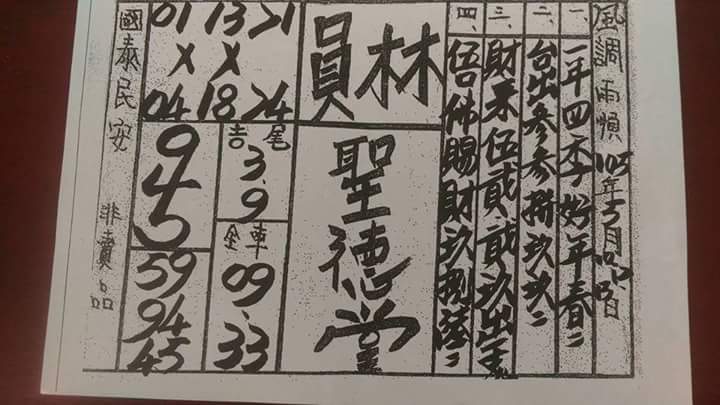 風調雨順 105年5月
一、一年四季好年春=
二、台出參參擠玖玖=
三、財來伍貳、貳玖出
四、伍佛賜財玖捌陸=
員林
聖德堂
01 13 21
X X
04 18 24
吉尾
3.9
全車
09.33
9
4
5
59
94
45
國泰民安 非賣品